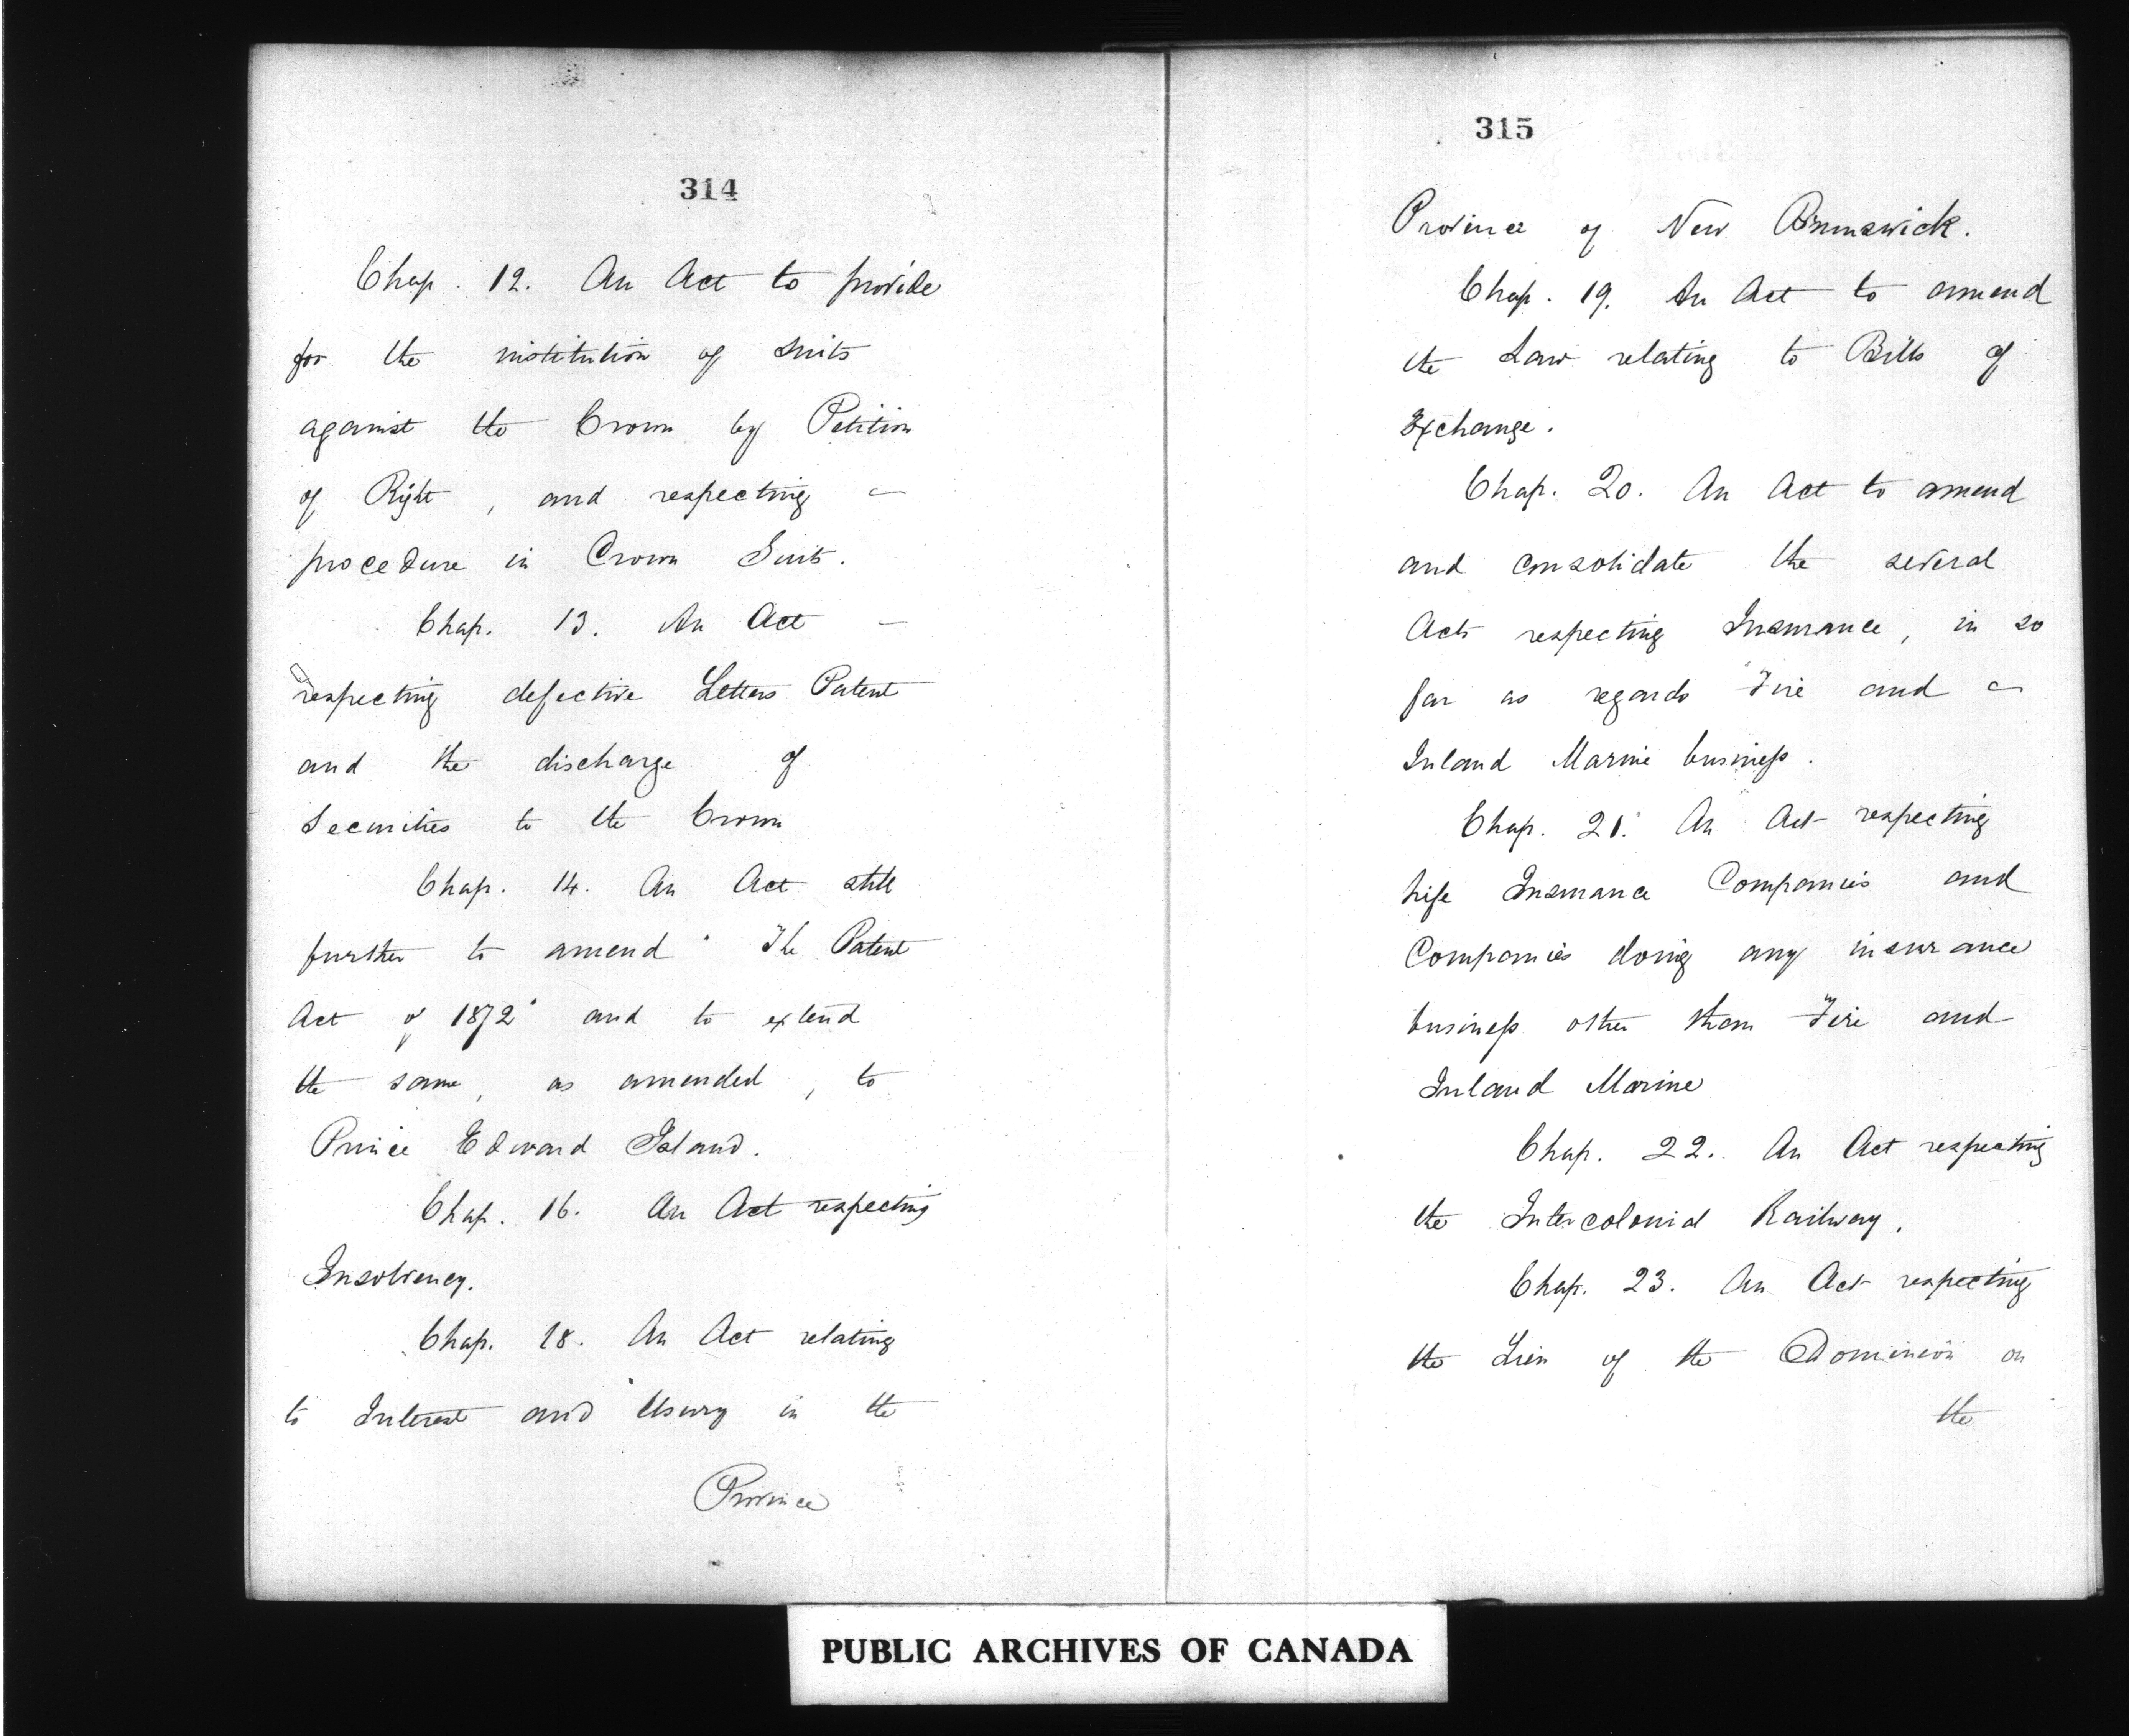 314
Chap. 12. An Act to provide
for the institution of suits
against the Crown by Petition
of Right, and respecting -
procedure in Crown Suits.
Chap. 13. An Act -
respecting defective Letters Patent
and the discharge of
Securities to the Crown
Chap. 14. An Act still
further to amend "The Patent
Act of 1872" and to extend
the same, as amended, to
Prince Edward Island.
Chap. 16. An Act respecting
Insolvency.
Chap. 18. An Act relating
to Interest and Usury in the
Province
315
Province of New Brunswick.
Chap. 19. An Act to amend
the Law relating to Bills of
Exchange.
Chap. 20. An Act to amend
and consolidate the several
Acts respecting Insurance, in so
far as regards Fire and -
Inland Marine business.
Chap. 21. An Act respecting
Life Insurance Companies and
Companies doing any insurance
business other than Fire and
Inland Marine
Chap. 22. An Act respecting
the Intercolonial Railway.
Chap. 23. An Act respecting
the Lien of the Dominion on
the
PUBLIC ARCHIVES OF CANADA